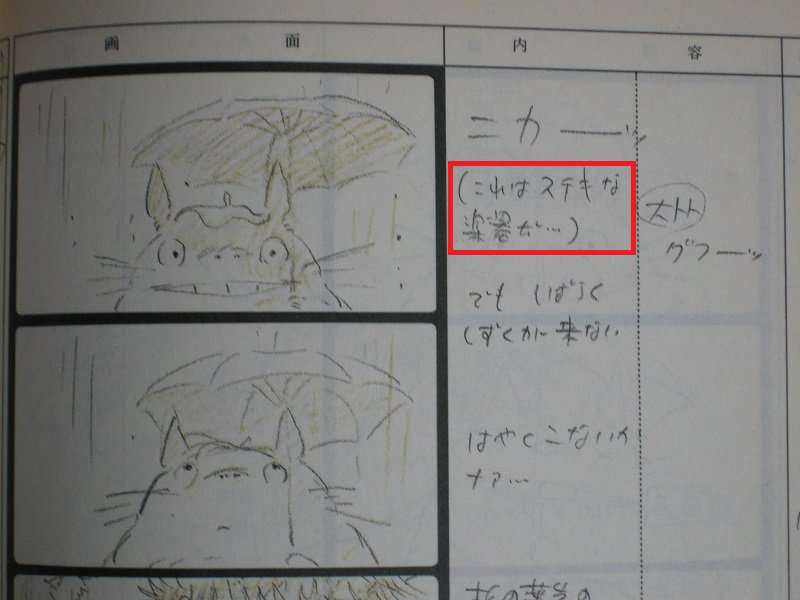 画面
内容
ニカーッ
(これはステキな
楽器だ…)
大トトロ
グフーッ
でも しばらく
しずくが来ない
はやくこないか
ナァ…